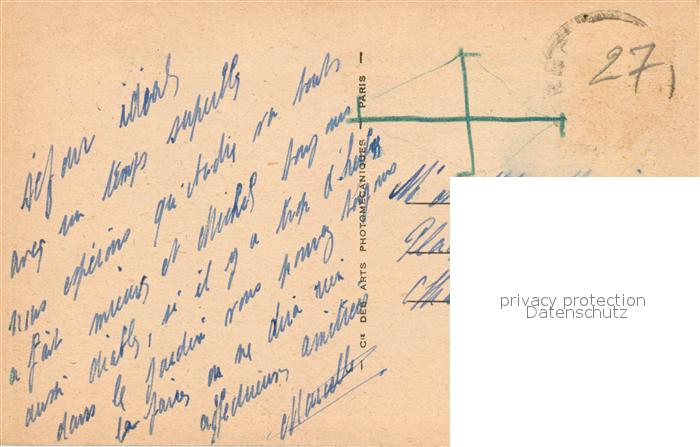 Séjour idéal
avec un temps superbe
nous espérons qu'André va tout
à fait mieux et Michel tous nos
aussi diables, si il y a trop d'herbe
dans le jardin vous pouvez tous
la faire on ne dira rien
affectueuses amitiés
Marcelle
Cie DES ARTS PHOTOMÉCANIQUES — PARIS
27
M
Pla
Cha
privacy protection
Datenschutz